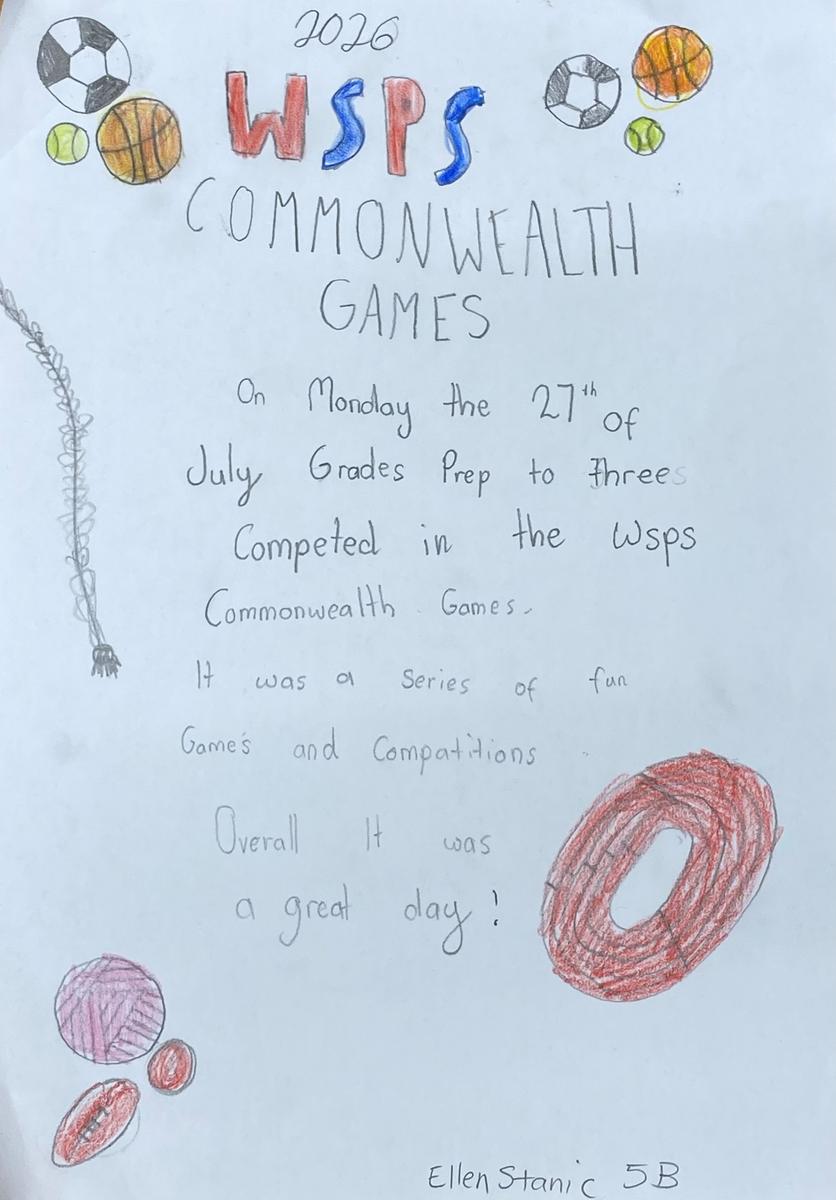 2026
WSPS
COMMONWEALTH
GAMES
On Monday the 27th of
July Grades Prep to threes
Competed in the Wsps
Commonwealth Games.
It was a series of fun
Game's and Compatitions
Overall It was
a great day!
Ellen Stanic 5B